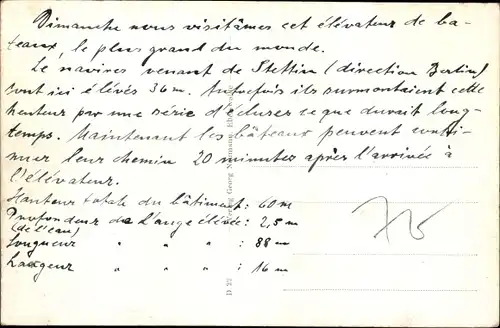 Dimanche nous visitâmes cet élévateur de ba-
teaux, le plus grand du monde.
Le navires venant de Stettin (direction Berlin)
sont ici élevés 36 m. Autrefois ils surmontaient cette
hauteur par une série d'écluses ce que durait long-
temps. Maintenant les bâteaux peuvent conti-
nuer leur chemin 20 minutes après l'arrivée à
l'élévateur.
Hauteur totale du bâtiment: 60 m
Profondeur de l'auge élevée: 2,5 m
(de l'eau)
Longueur " " " : 88 m
Largeur " " " : 16 m
Verlag Georg